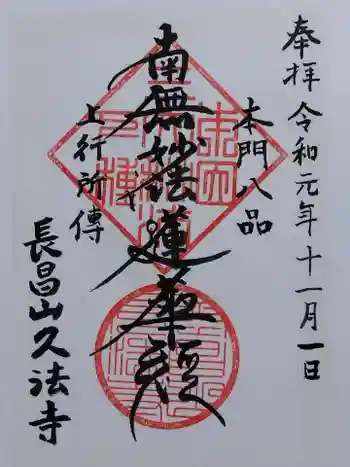 奉拝 令和元年十一月一日
本門八品
南無妙法蓮華経
上行所傳
長昌山久法寺